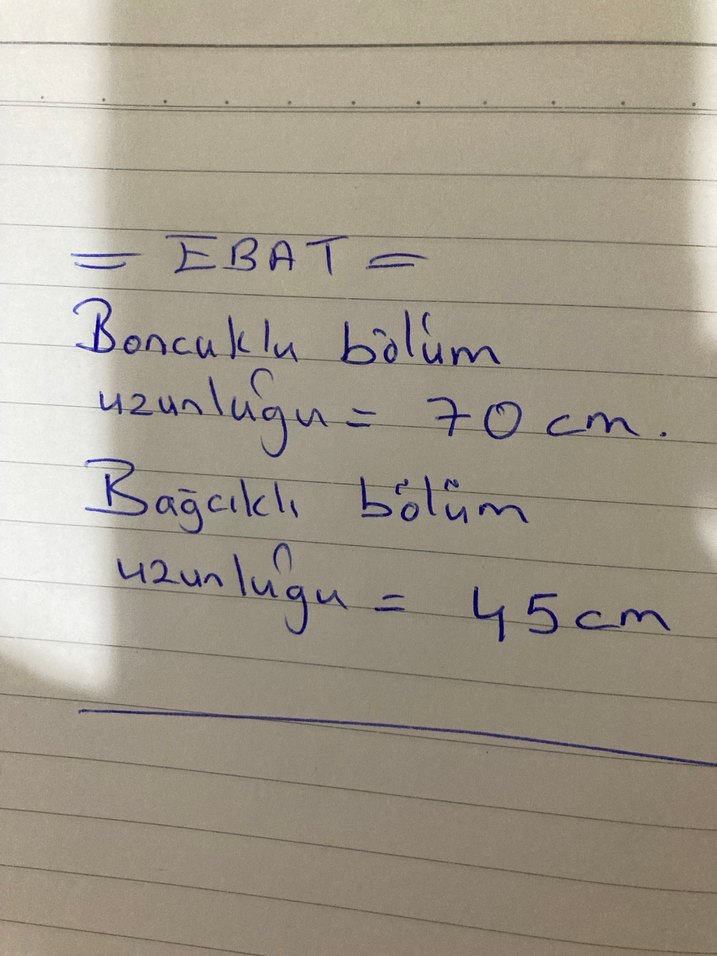 = EBAT =
Boncuklu bölüm
uzunluğu = 70 cm.
Bağcıklı bölüm
uzunluğu = 45cm